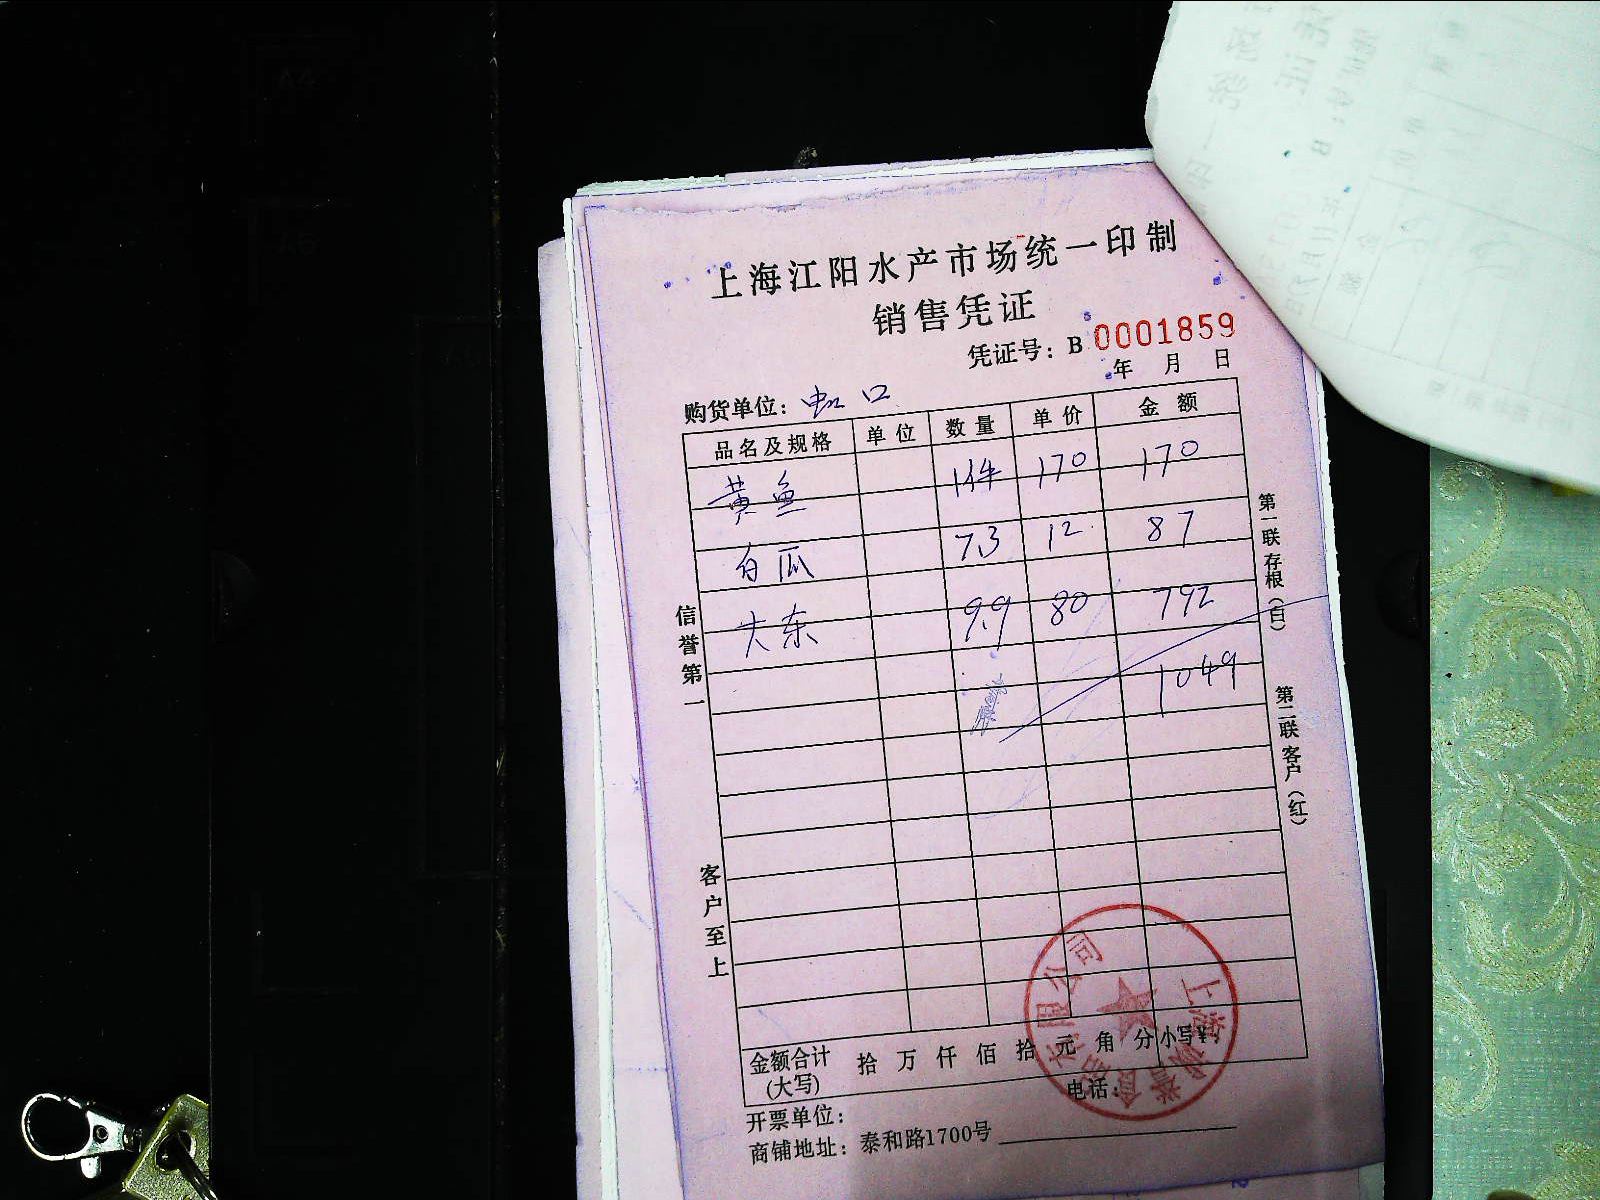 上海江阳水产市场统一印制
销售凭证
凭证号：B 0001859
年 月 日
购货单位：虹口
品名及规格 单位 数量 单价 金额
黄鱼 1件 170 170
白瓜 7.3 12 87
大东 9.9 80 792
1049
信誉第一
客户至上
第一联存根（白）
第二联客户（红）
金额合计(大写) 拾 万 仟 佰 拾 元 角 分 小写¥
开票单位： 电话：
商铺地址：泰和路1700号